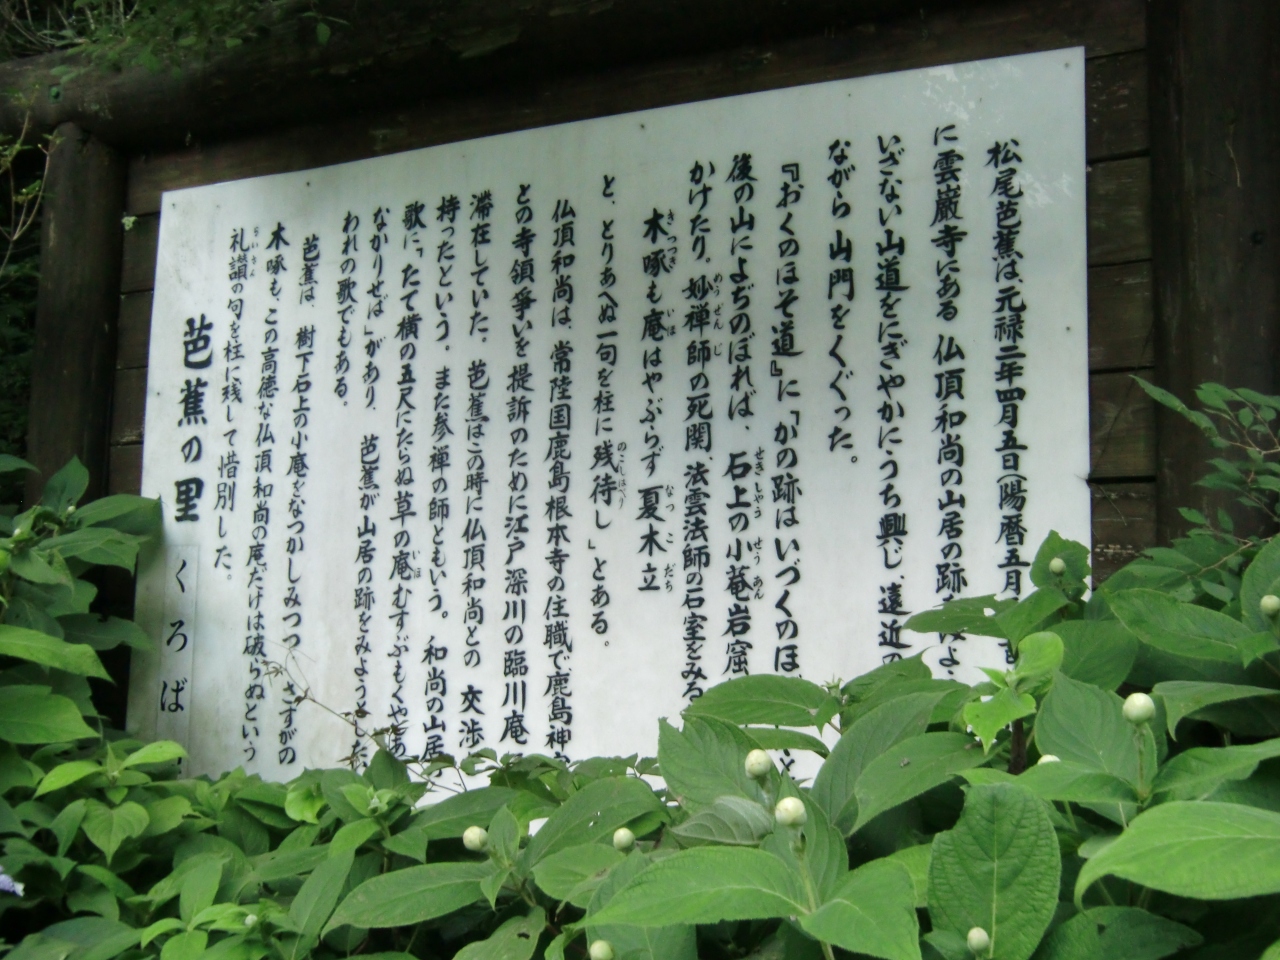 松尾芭蕉は、元禄二年四月五日(陽暦五月
に雲巌寺にある 仏頂和尚の山居の跡
いざない山道をにぎやかにうち興じ、遠近の
ながら山門をくぐった。
『おくのほそ道』に「かの跡はいづくのほ
後の山によぢのぼれば、石上の小菴岩窟
かけたり。妙禅師の死関、法雲法師の石室をみる
木啄も庵はやぶらず 夏木立
と、とりあへぬ一句を柱に残待し」とある。
仏頂和尚は、常陸国鹿島根本寺の住職で鹿島神
との寺領争いを提訴のために江戸深川の臨川庵
滞在していた。芭蕉はこの時に仏頂和尚との 交渉
持ったという。また参禅の師ともいう。和尚の山居
歌に、「たて横の五尺にたらぬ草の庵むすぶもくやし
なかりせば」があり、芭蕉が山居の跡をみようとした
われの歌でもある。
芭蕉は、樹下石上の小庵をなつかしみつつ、さすがの
木啄も、この高徳な仏頂和尚の庵だけは破らぬという
礼讃の句を柱に残して惜別した。
芭蕉の里 くろば